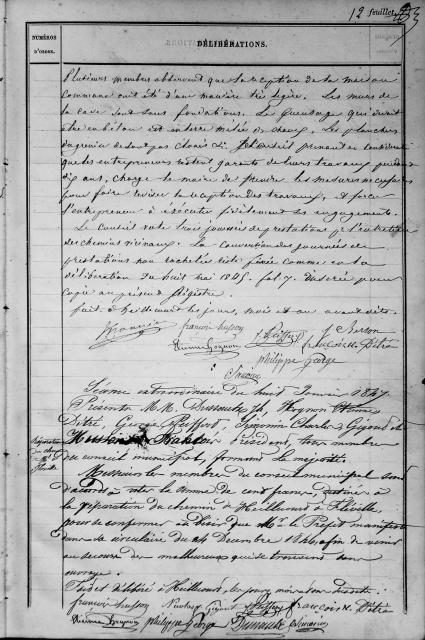 12 feuillet
NUMÉROS
D'ORDRE.
DÉLIBÉRATIONS.
Plusieurs membres observent que la réception de la maison
commune ont été d'une manière très légère. Les murs de
la cave sont sans fondations. Le qui devait
être en béton est en terre mêlée de chaux. Les planchers
du grenier ne sont pas clouées. Le Conseil prenant en considération
que les entrepreneurs restent garants de leurs travaux pendant
dix ans, charge le maire de prendre les mesures nécessaires
pour faire reviser la réception des travaux, et forcer
l'entrepreneur à exécuter fidèlement ses engagements.
Le Conseil vote trois journées de prestations pr l'entretien
des chemins vicinaux. La conversion des journées de
prestations non rachetées fixée comme en la
délibération du huit mai 1845. fol 7. Insérée pour
copie au présent Régistre.
fait à les jours, mois et an avant dits.
françois husson
Pfeiffert
J Cherson
Etienne Hognon
françois N. Ditré
philippe george
Séance extraordinaire du huit Janvier 1847
Présents M.M. Hognon Etienne
Ditré, George, Pfeiffert, Charles, Gigout
Président, tous membres
du conseil municipal, formant la majorité.
Réparation
du chemin
de
Fléville
Messieurs les membres du conseil municipal sont
d'accord à voter la somme de cent francs, destinée à
la réparation du chemin de Heillecourt à Fléville,
pour se conformer au désir que Mr. le Préfet manifeste
dans sa circulaire du 24 Décembre 1846 afin de venir
au secours des malheureux qui se trouvent sans
ouvrage.
Fait et délibéré à Heillecourt, les jour, mois et an susdits.
françois husson Gigout Pfeiffert françois N. Ditré
Etienne hognon philippe george